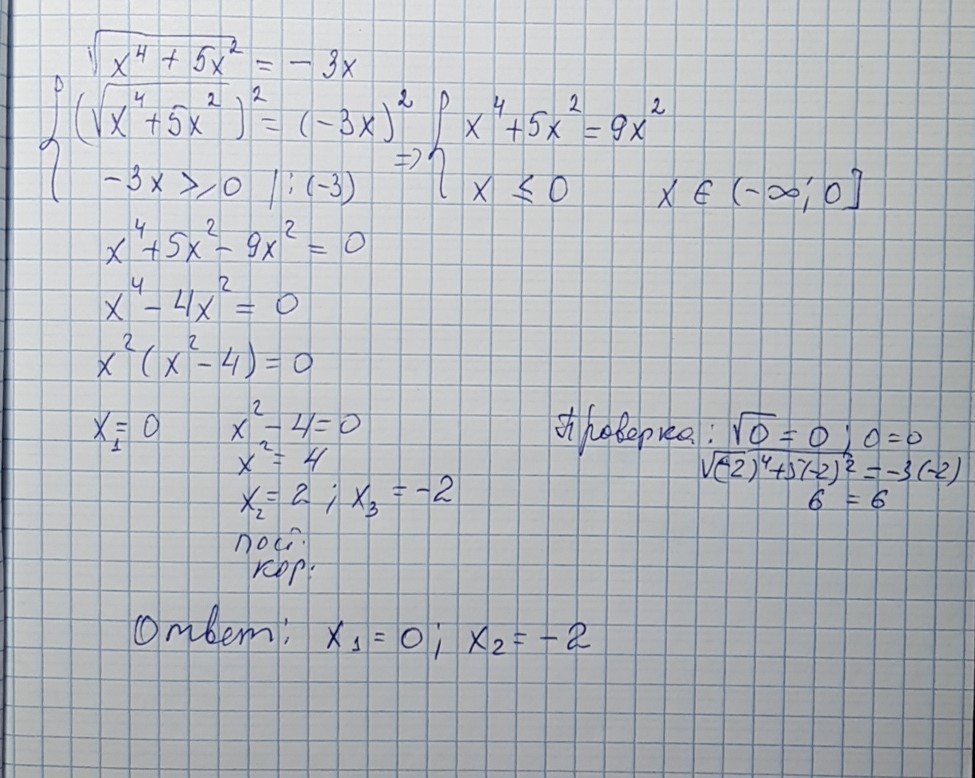 √(x⁴ + 5x²) = - 3x
{ (√(x⁴+5x²))² = (-3x)² => { x⁴+5x² = 9x²
-3x ≥ 0 | : (-3) x ≤ 0 x ∈ (-∞; 0]
x⁴+5x² - 9x² = 0
x⁴ - 4x² = 0
x² (x² - 4) = 0
x₁ = 0 x² - 4 = 0
x² = 4
x₂ = 2 ; x₃ = -2
пост.
кор.
Проверка: √0 = 0 ; 0 = 0
√((-2)⁴+5(-2)²) = -3(-2)
6 = 6
Ответ: x₁ = 0; x₂ = -2